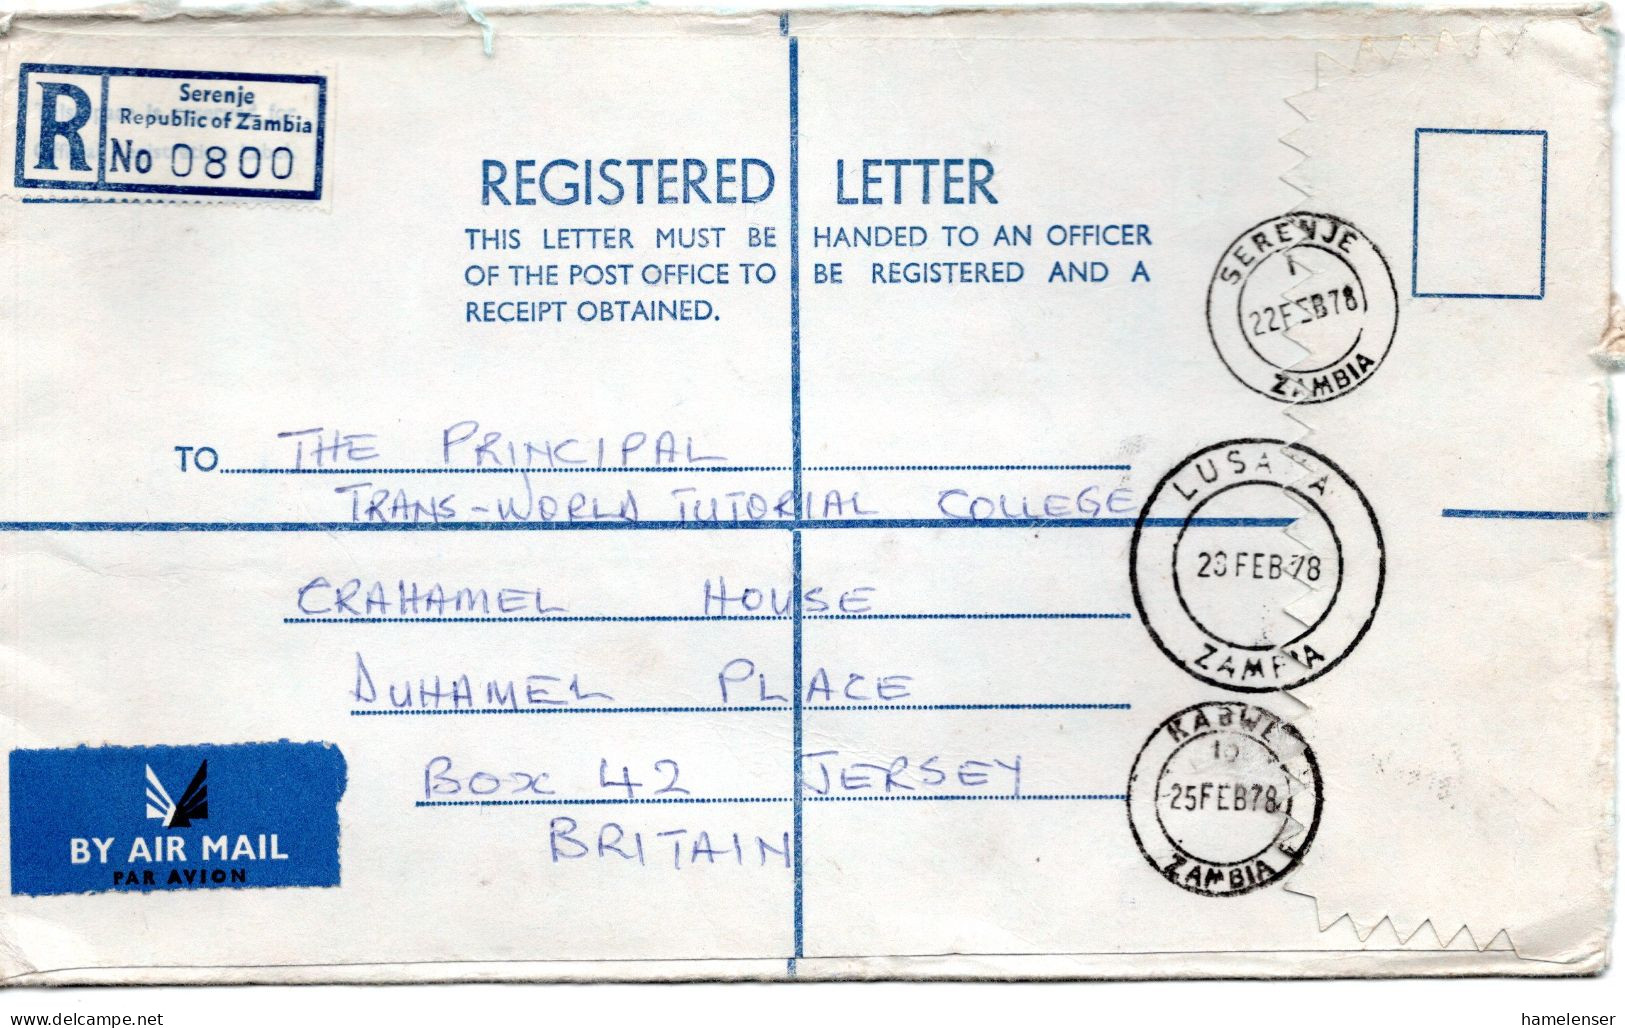 R
Serenje
Republic of Zambia
No 0800
REGISTERED LETTER
THIS LETTER MUST BE HANDED TO AN OFFICER
OF THE POST OFFICE TO BE REGISTERED AND A
RECEIPT OBTAINED.
SERENJE
22FEB78
ZAMBIA
TO THE PRINCIPAL
TRANS-WORLD TUTORIAL COLLEGE
CRAHAMEL HOUSE
DUHAMEL PLACE
BOX 42 JERSEY
BRITAIN
LUSAKA
FEB 78
ZAMBIA
KABWE
10
25FEB78
ZAMBIA
BY AIR MAIL
PAR AVION
www.delcampe.net
hamelenser